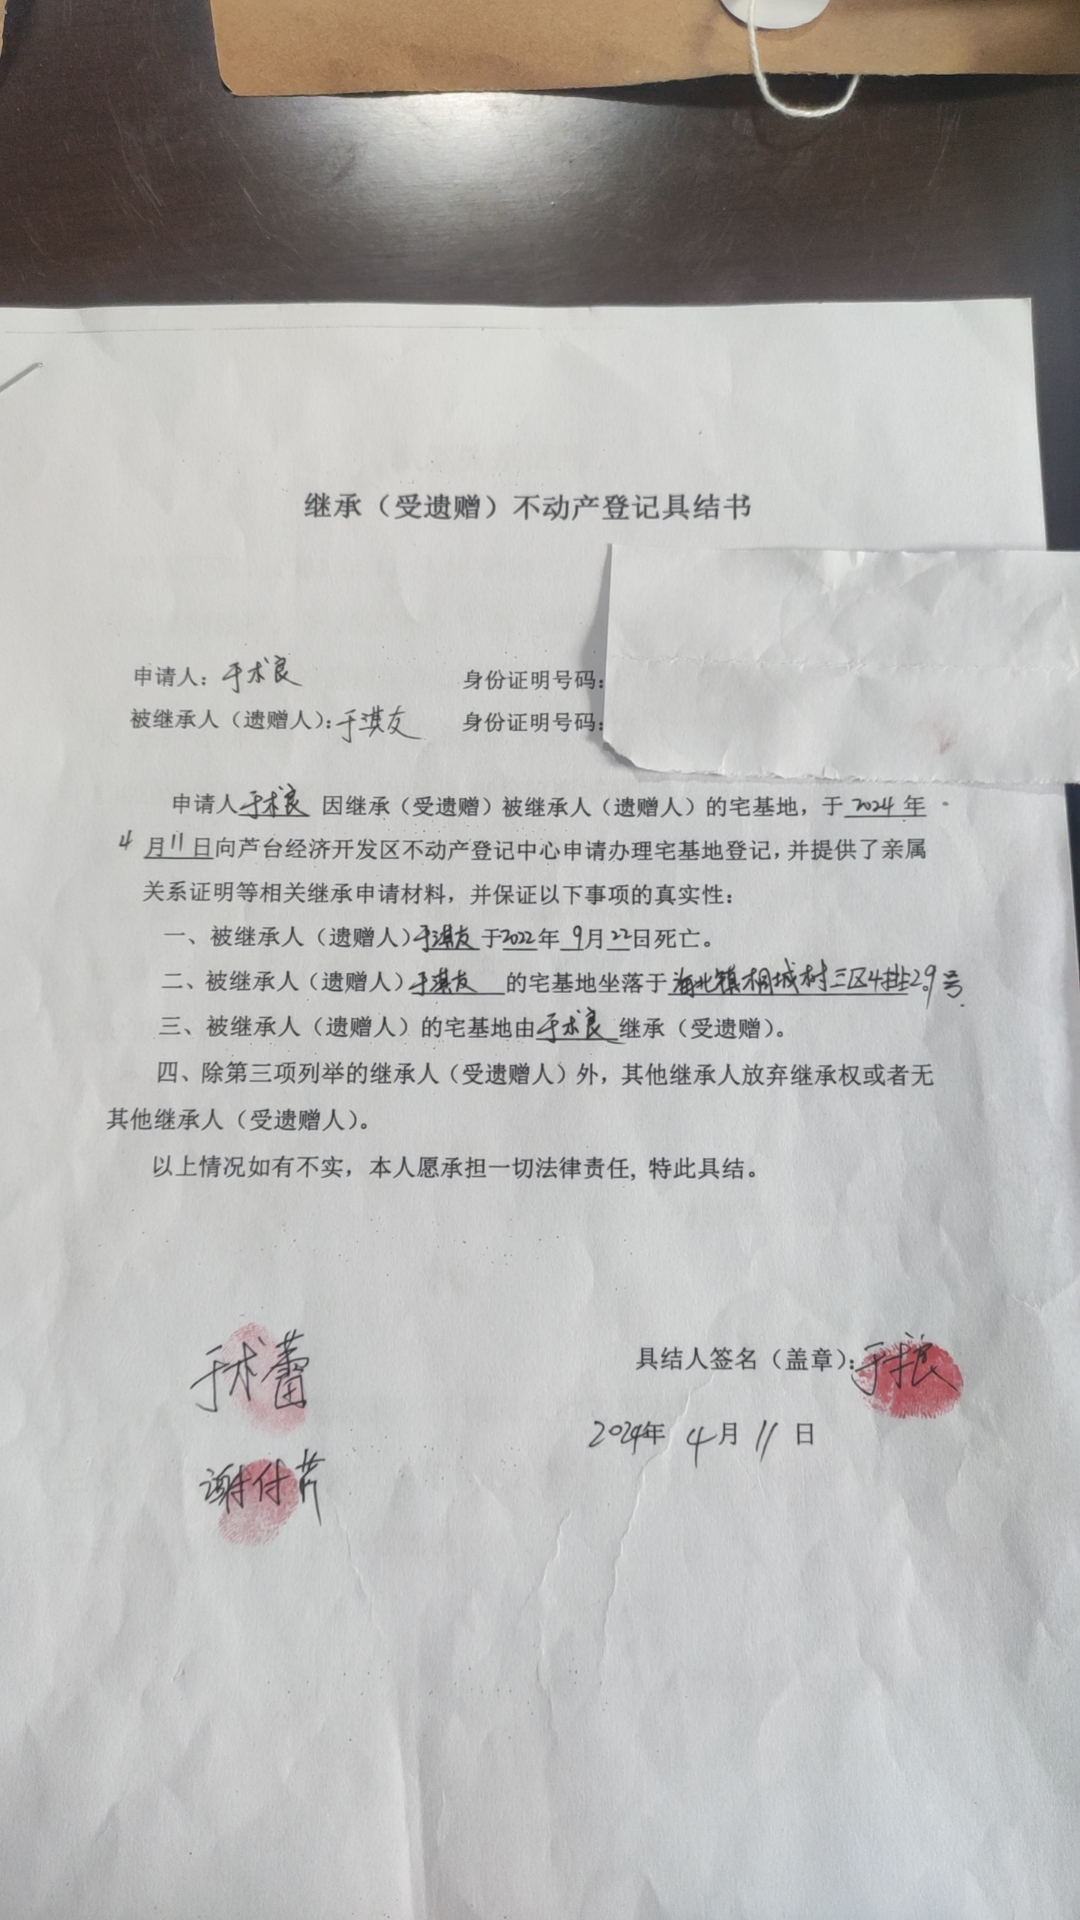 继承（受遗赠）不动产登记具结书
申请人：于术良 身份证明号码：
被继承人（遗赠人）：于淇友 身份证明号码：
申请人于术良 因继承（受遗赠）被继承人（遗赠人）的宅基地，于2024年
4月11日向芦台经济开发区不动产登记中心申请办理宅基地登记，并提供了亲属
关系证明等相关继承申请材料，并保证以下事项的真实性：
一、被继承人（遗赠人）于淇友于2022年9月22日死亡。
二、被继承人（遗赠人）于淇友 的宅基地坐落于海北镇桐城村三区4排29号
三、被继承人（遗赠人）的宅基地由于术良继承（受遗赠）。
四、除第三项列举的继承人（受遗赠人）外，其他继承人放弃继承权或者无
其他继承人（受遗赠人）。
以上情况如有不实，本人愿承担一切法律责任，特此具结。
于术蕾 具结人签名（盖章）：于术良
2024年 4月 11日
谢付芹